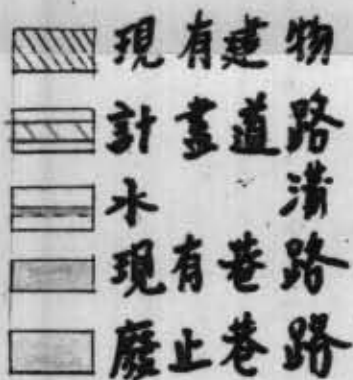 現有建物
計畫道路
水溝
現有巷路
廢止巷路